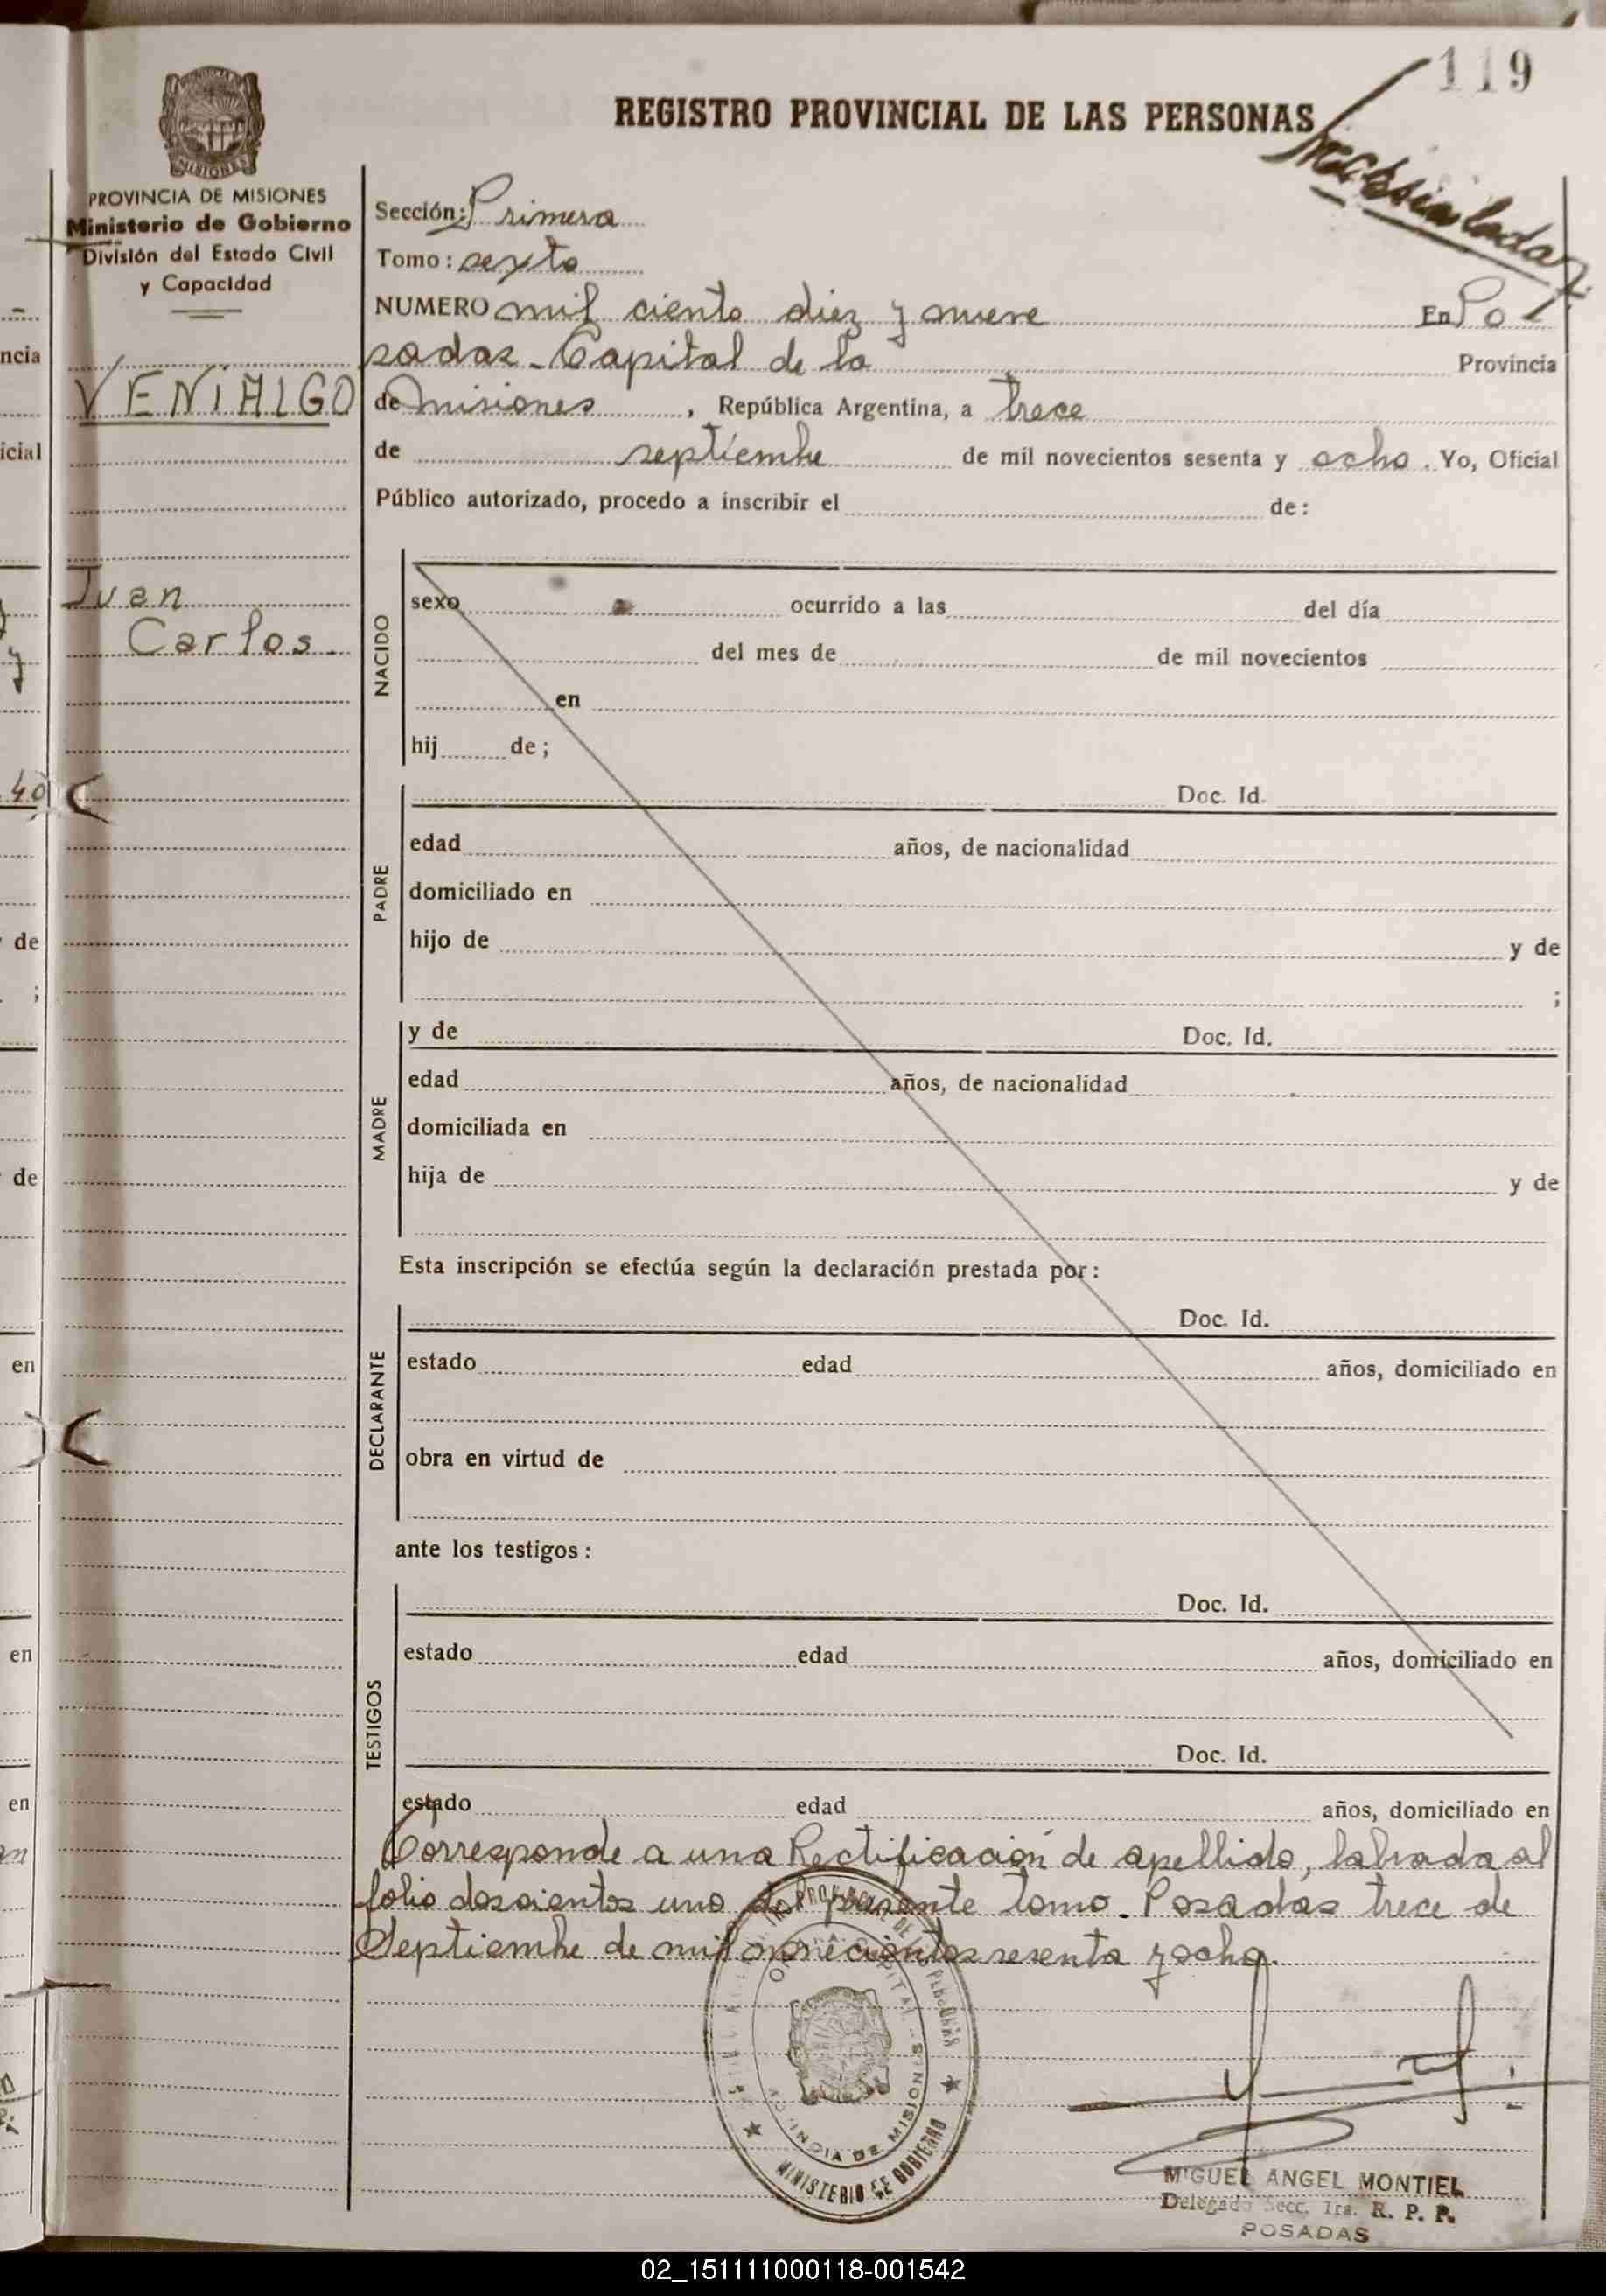 119
REGISTRO PROVINCIAL DE LAS PERSONAS
MISIONES
PROVINCIA DE MISIONES
Ministerio de Gobierno
División del Estado Civil
y Capacidad
Sección: Primera
Tomo: sexto
NUMERO mil ciento diez y nueve En Po
sadas - Capital de la Provincia
VENIALGO
de Misiones, República Argentina, a trece
de septiembre de mil novecientos sesenta y ocho. Yo, Oficial
Público autorizado, procedo a inscribir el de:
Juan
Carlos.
NACIDO
sexo ocurrido a las del día
del mes de de mil novecientos
en
hij de;
PADRE
Doc. Id.
edad años, de nacionalidad
domiciliado en
hijo de y de
;
MADRE
y de Doc. Id.
edad años, de nacionalidad
domiciliada en
hija de y de
Esta inscripción se efectúa según la declaración prestada por:
DECLARANTE
Doc. Id.
estado edad años, domiciliado en
obra en virtud de
ante los testigos:
TESTIGOS
Doc. Id.
estado edad años, domiciliado en
Doc. Id.
estado edad años, domiciliado en
Corresponde a una Rectificación de apellido, labrada al
folio doscientos uno del presente tomo. Posadas trece de
Septiembre de mil novecientos sesenta y ocho.
MINISTERIO DE GOBIERNO
MIGUEL ANGEL MONTIEL
Delegado Secc. 1ra. R. P. P.
POSADAS
ncia
icial
40
de
;
de
en
en
en
02_151111000118-001542